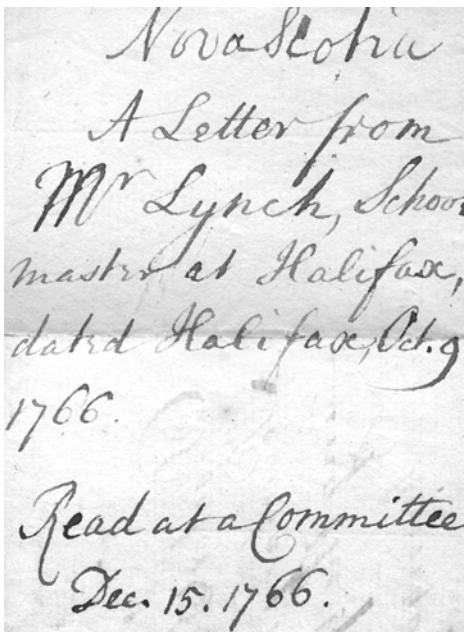 Nova Scotia
A Letter from
Mr Lynch, School
master at Halifax,
dated Halifax, Oct. 9
1766.
Read at a Committee
Dec. 15. 1766.